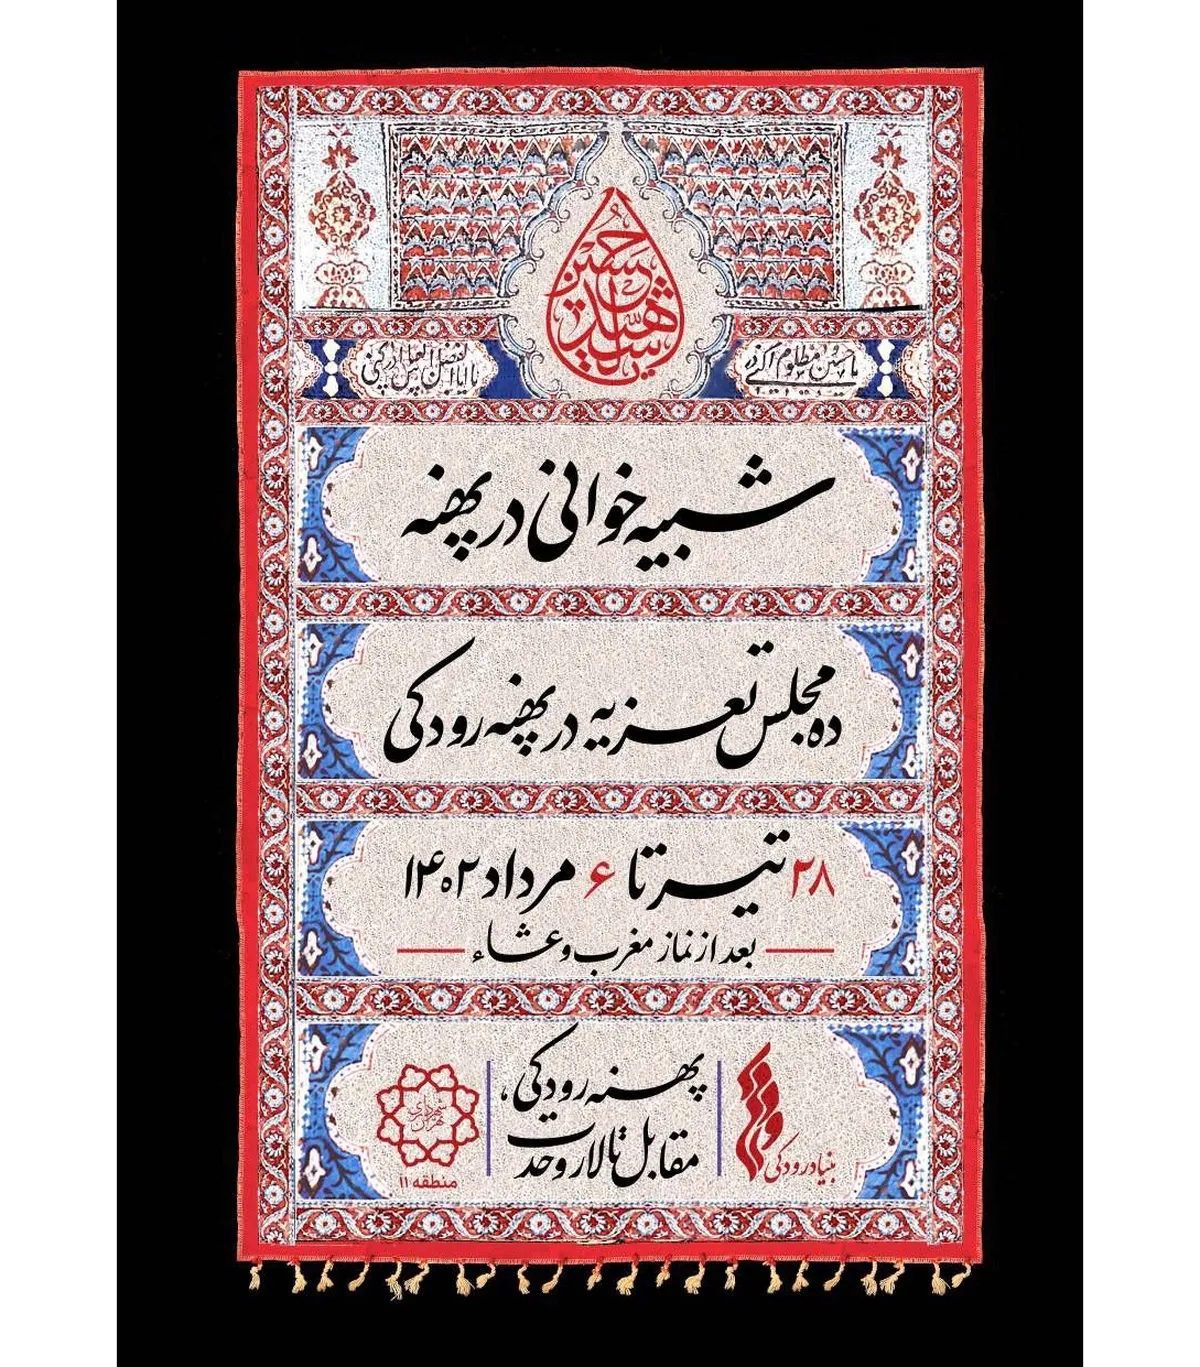 حسین
سیدالشهدا
یا حسین مظلوم ادرکنی
یا اباالفضل العباس ادرکنی
شبیه‌خوانی در پهنه
ده مجلس تعزیه در پهنه رودکی
۲۸ تیر تا ۶ مرداد ۱۴۰۲
بعد از نماز مغرب و عشاء
بنیاد رودکی
پهنه رودکی،
مقابل تالار وحدت
شهرداری تهران
منطقه ۱۱